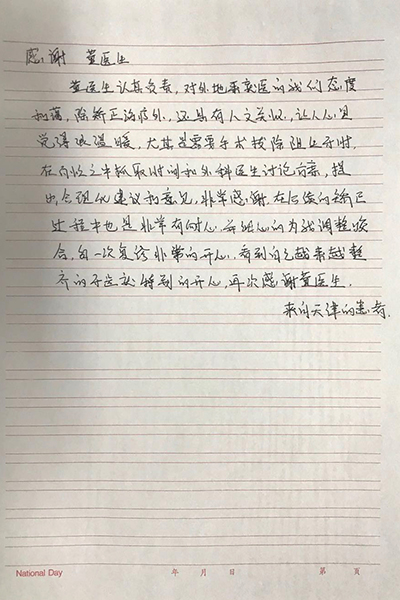 感谢 董医生
董医生认真负责,对外地来就医的我们态度
和蔼,除矫正治疗外,还具有人文关怀,让人心里
觉得很温暖,尤其是需要手术拔除阻生牙时,
在百忙之中抓取时间和外科医生讨论方案,提
出合理化建议和意见,非常感谢。在后续的矫正
过程中也是非常有耐心、细心的为我调整咬
合,每一次复诊非常的开心,看到自己越来越整
齐的牙齿就特别的开心,再次感谢董医生。
来自天津的患者.
National Day 年 月 日 第 页